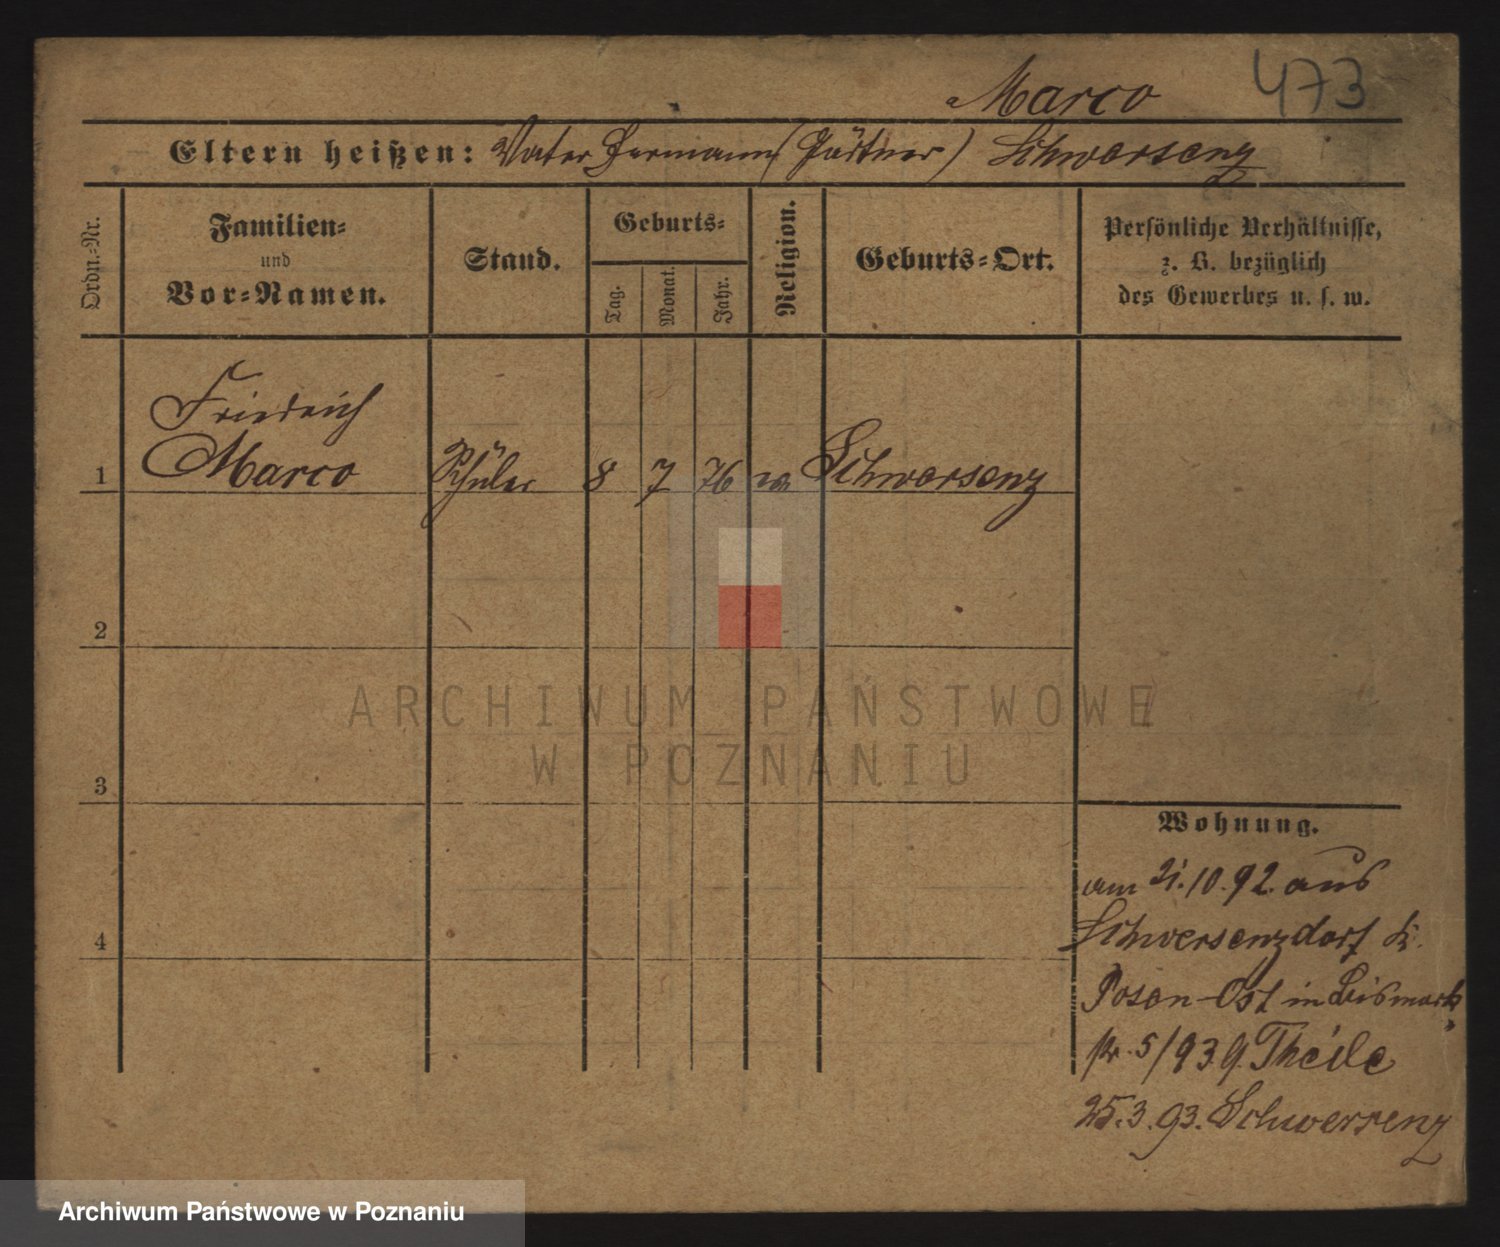 Marco 473
Eltern heißen: Vater Hermann (Gärtner) Schwersenz
Ordn.-Nr.
Familien-
und
Vor-Namen.
Stand.
Geburts-
Tag.
Monat.
Jahr.
Religion.
Geburts-Ort.
Persönliche Verhältnisse,
z. B. bezüglich
des Gewerbes u. s. w.
Friedrich
1 Marco Schüler 8 7 76 Schwersenz
2
ARCHIWUM PAŃSTWOWE
W POZNANIU
3
Wohnung.
am 21.10.92. aus
4 Schwersenzdorf K.
Posen-Ost in Bismark
str. 5/93 g. Theile
25.3.93. Schwersenz
Archiwum Państwowe w Poznaniu